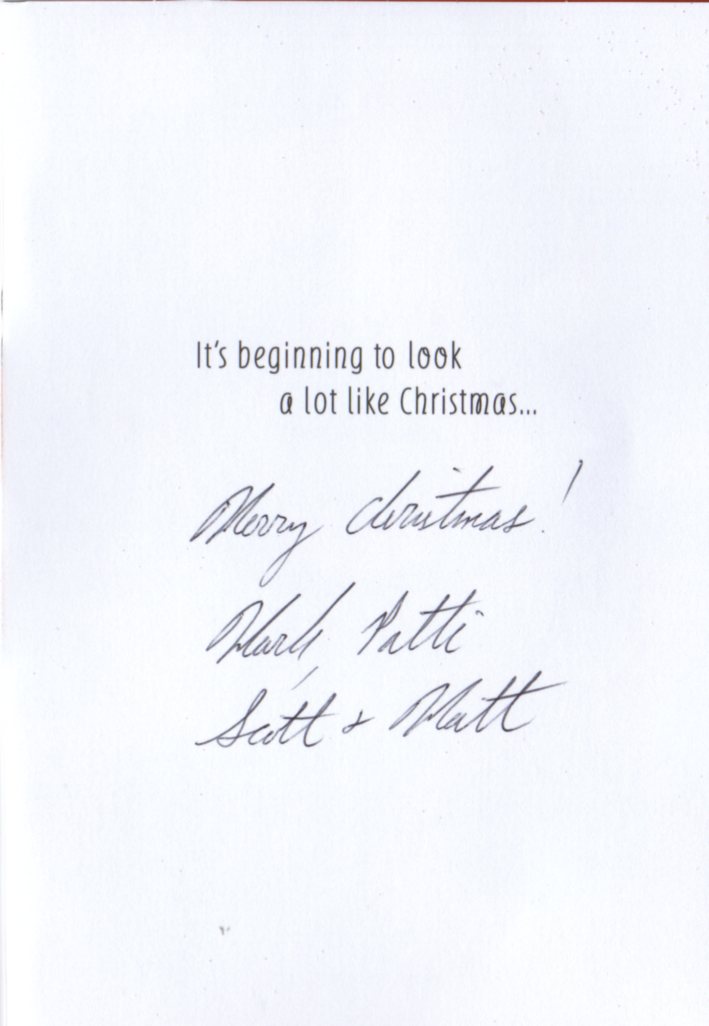 It's beginning to look
a lot like Christmas...
Merry Christmas!
Mark, Patti
Scott & Matt